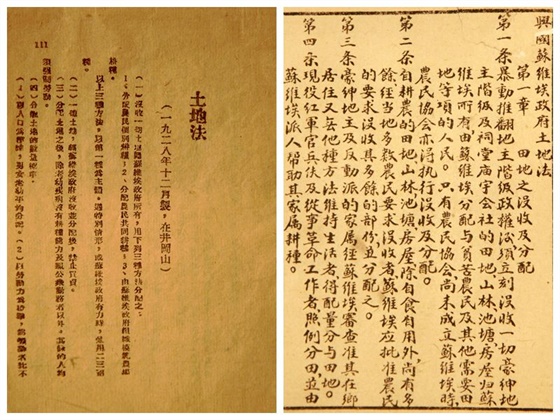 興國蘇維埃政府土地法
第一章 田地之没收及分配
第一条暴動推翻地主階級政權後須立刻没收一切豪紳地
主階級及祠堂庙宇会社的田地山林池塘房屋归蘇
维埃所有由蘇维埃分配与貧苦農民及其他需要田
地等項的人民。只有農民協会尚未成立蘇维埃時,
農民協会亦得執行没收及分配。
第二条自耕農的田地山林池塘房屋除自食自用外尚有多
餘經当地多数農民要求没收者蘇维埃应批准農民
的要求没收其多餘的部份並分配之。
第三条豪紳地主及反動派的家属經蘇维埃審查准其在鄉
居住又無他種方法维持生活者得配量分与田地。
第四条現役紅軍官兵伕及從事革命工作者照例分田,並由
蘇维埃派人帮助其家属耕種。
111
土地法
(一九二八年十二月製,在井岡山)
(一)沒收一切土地歸蘇維埃政府所有,用下列三種方法分配之:
1、分配農民個別耕種;2、分配農民共同耕種;3、由蘇維埃政府組織模範農場
耕種。
以上三種方法,以第一種為主體。遇特別情形,或蘇維埃政府有力時,兼用二三兩
種。
(二)一切土地,經蘇維埃政府沒收並分配後,禁止買賣。
(三)分配土地之後,除老幼疾病沒有耕種能力及服公眾勤務者以外,其餘的人均
須強制勞動。
(四)分配土地的數量標準:
(1)以人口為標準,男女老幼平均分配。(2)以勞動力為標準,能勞動者比不